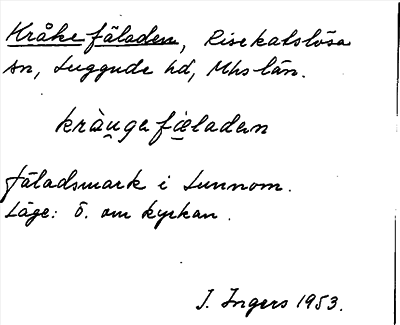 Kråke fäladen, Risekatslösa
sn, Luggude hd, Mhs län.
kràu̯gafi̯eladan
fäladsmark i Lunnom.
Läge: ö. om kyrkan.
J. Ingers 1953.